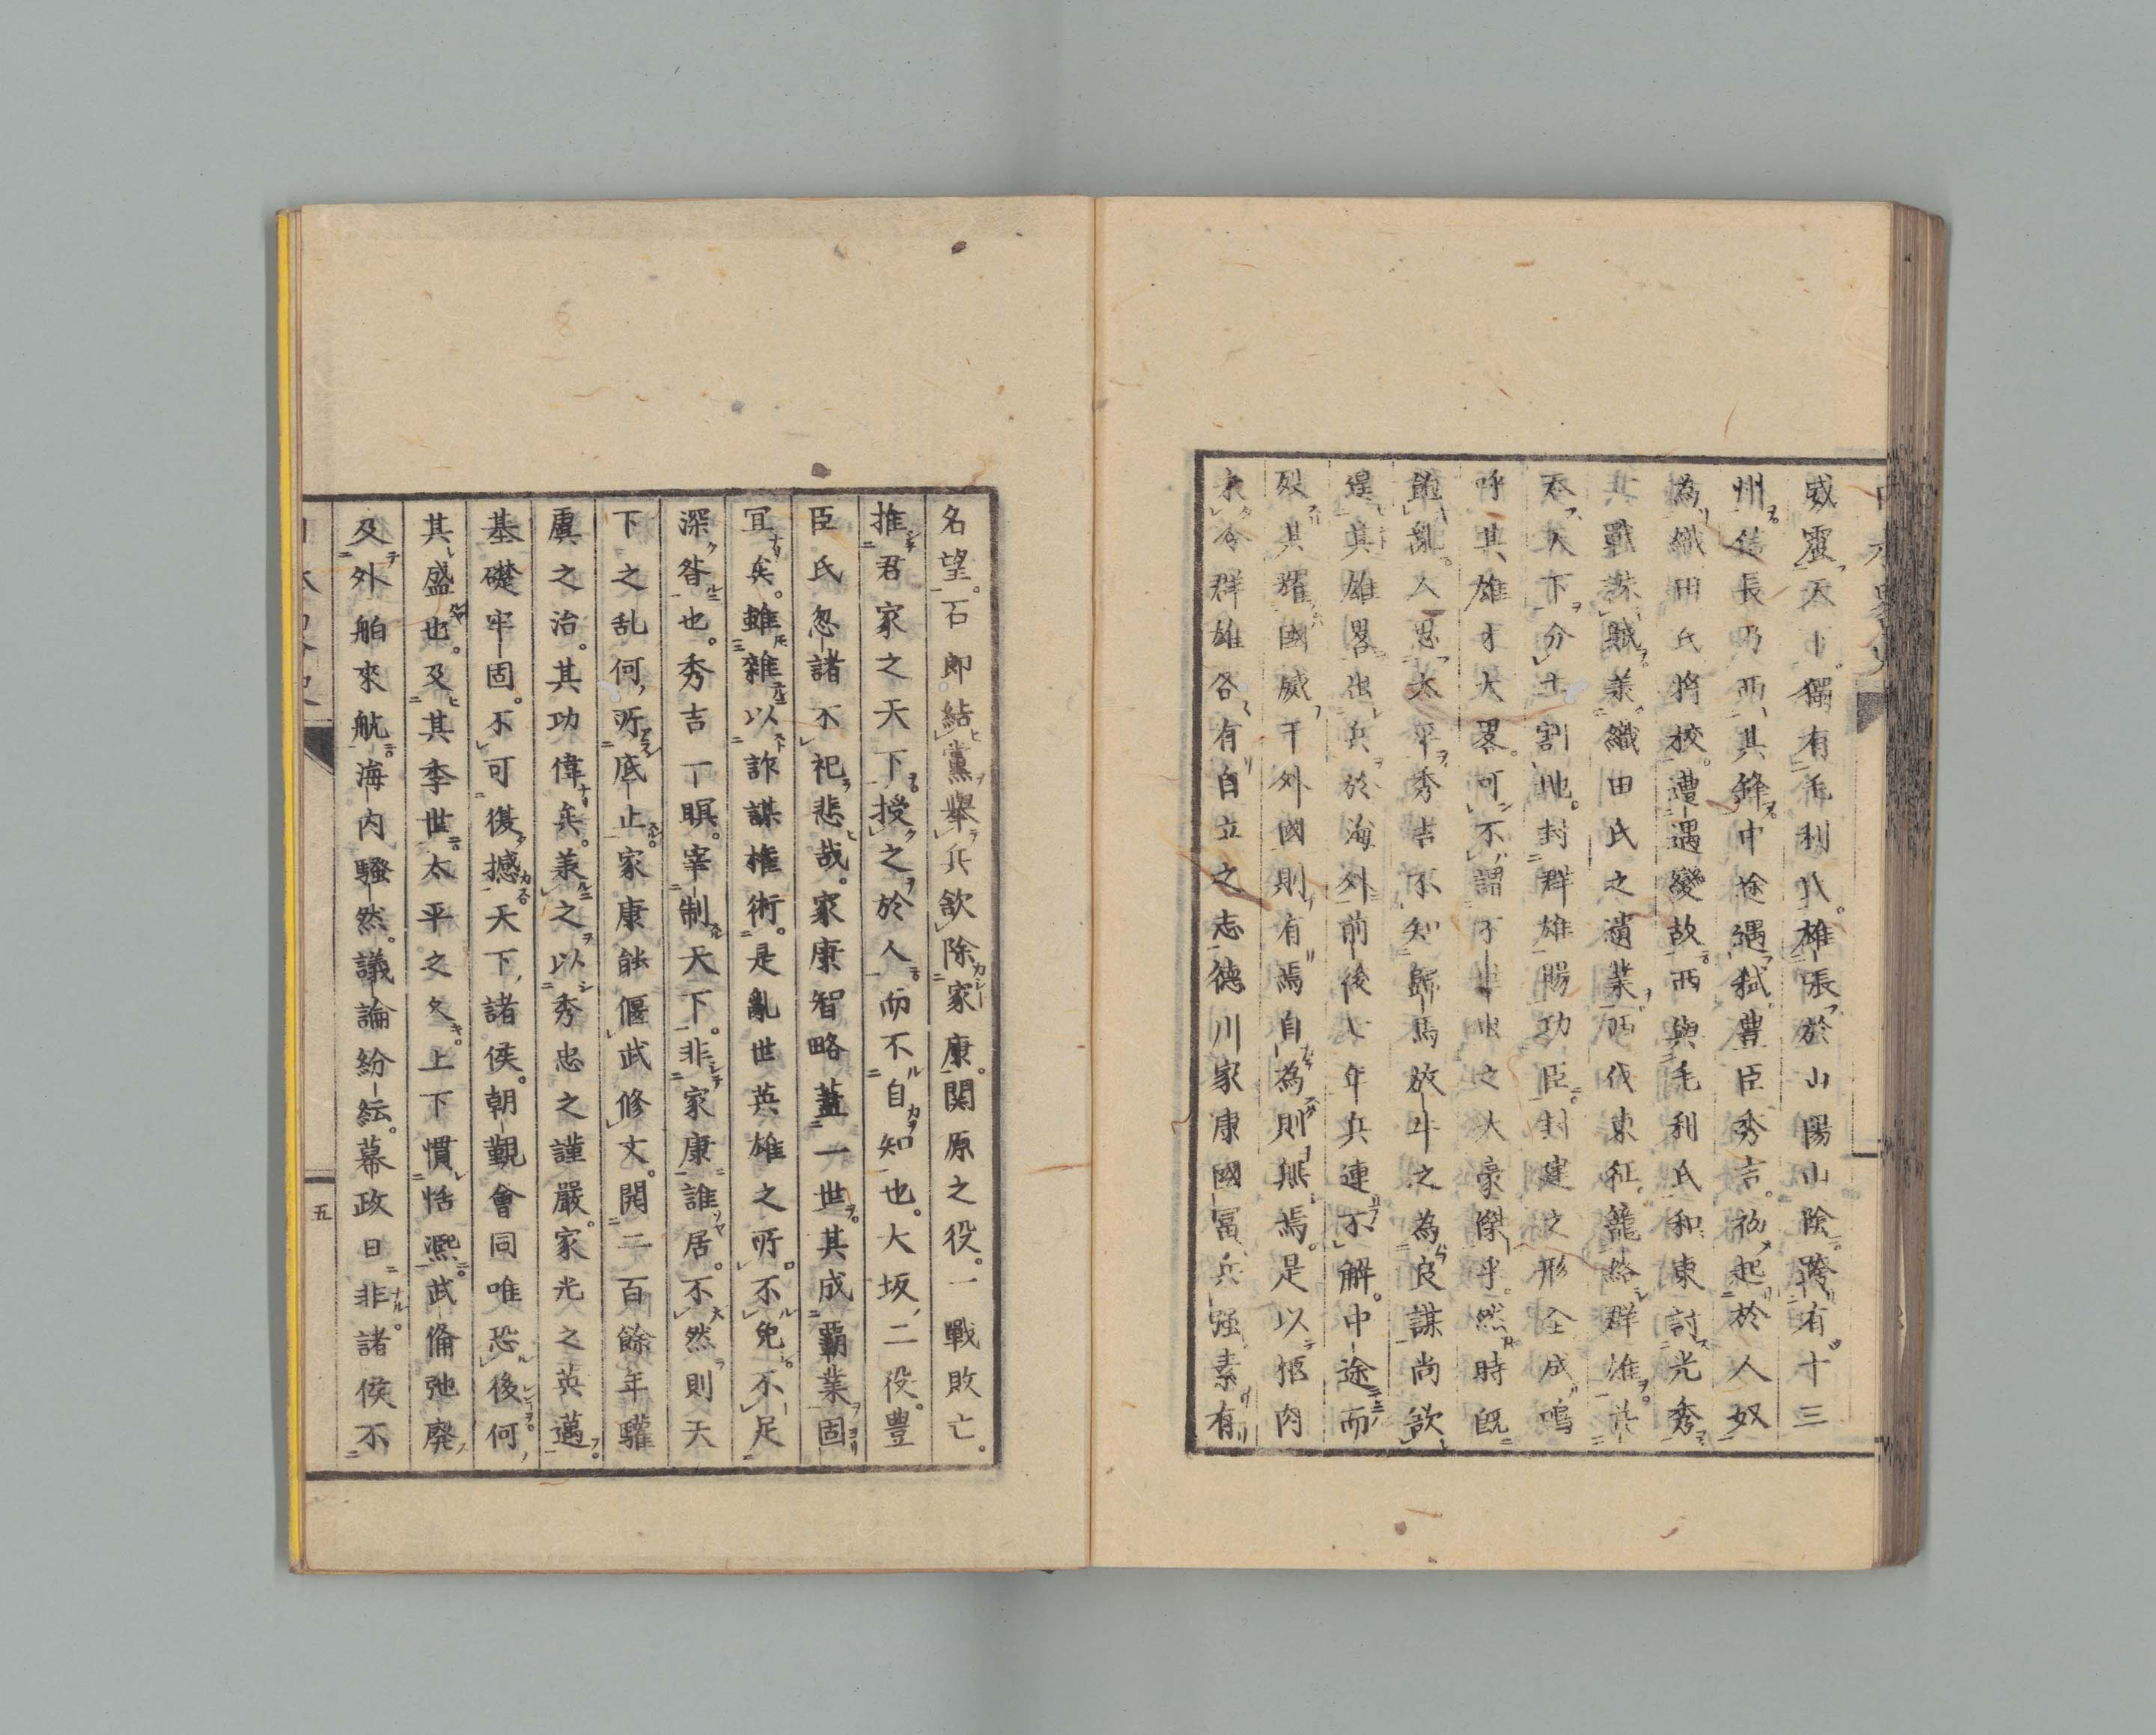 威震天下獨有毛利氏。雄張於山陽山陰跨有十三
州。信長乃西其鋒。中途遇弑。豊臣秀吉。初起於人奴
為織田氏將校。遭遇變故。西與毛利氏和東討光秀
其戰誅賊。兼織田氏之遺業。西伐東征。籠絡群雄。
天下分土割地。封群雄賜功臣。封建之形全成嗚
呼其雄才大畧。可不謂不出之人豪傑乎。然時既
亂。人思太平。秀吉不知歸馬放牛之為良謀尚欲
逞其雄畧出兵於海外前後七年兵連不解。中途而
歿其耀國威于外國則有焉自為則無焉。是以柩肉
未冷群雄各有自立之志德川家康國冨兵强素有
名望。石郎結黨舉兵欲除家康。関原之役。一戰敗亡。
推君家之天下授之於人而不自知也。大坂二役。豊
臣氏忽諸不祀悲哉。家康智略蓋一世。其成覇業固
宜矣。雖雜以詐謀権術。是亂世英雄之所。不免。不足
深咎也。秀吉一瞑。宰制天下。非家康誰居。不然則天
下之乱何所底止。家康能偃武修文。開二百餘年驩
虞之治。其功偉矣。兼之以秀忠之謹嚴。家光之英邁。
基礎牢固。不可復撼天下諸侯。朝覲會同唯恐後何
其盛也。及其季世。太平之久。上下慣恬凞。武僃弛廢
及外舶來航。海内騷然。議論紛紜。幕政日非。諸侯不
五